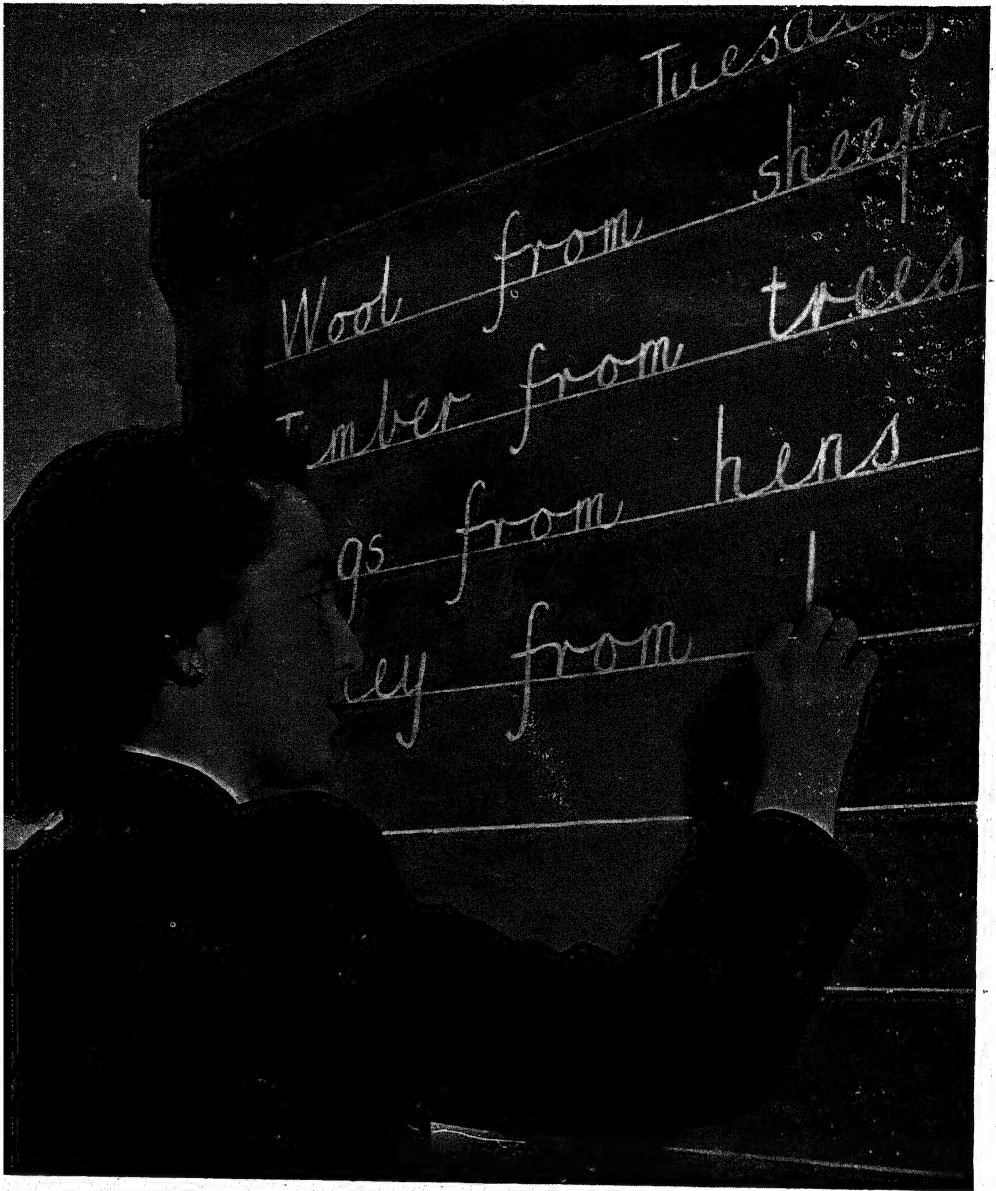 Tuesday
Wool from sheep.
Timber from trees
gs from hens
ey from l